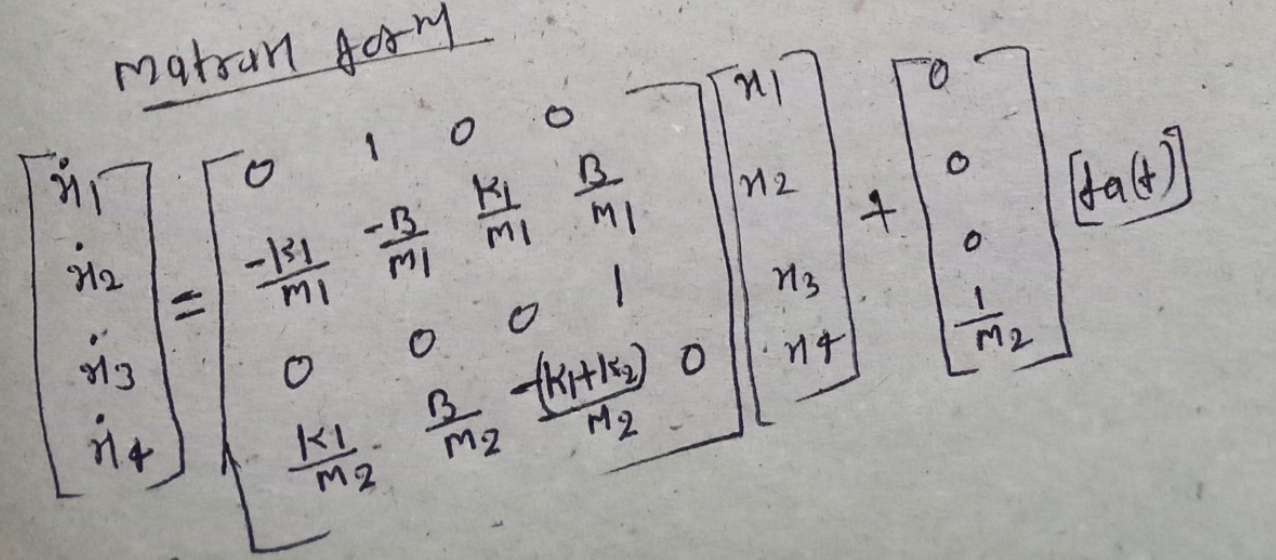 Matrix form
[ẋ1 ẋ2 ẋ3 ẋ4] = [0 1 0 0; -K1/M1 -B/M1 K1/M1 B/M1; 0 0 0 1; K1/M2 B/M2 -(K1+K2)/M2 0] [x1 x2 x3 x4] + [0 0 0 1/M2] [fa(t)]